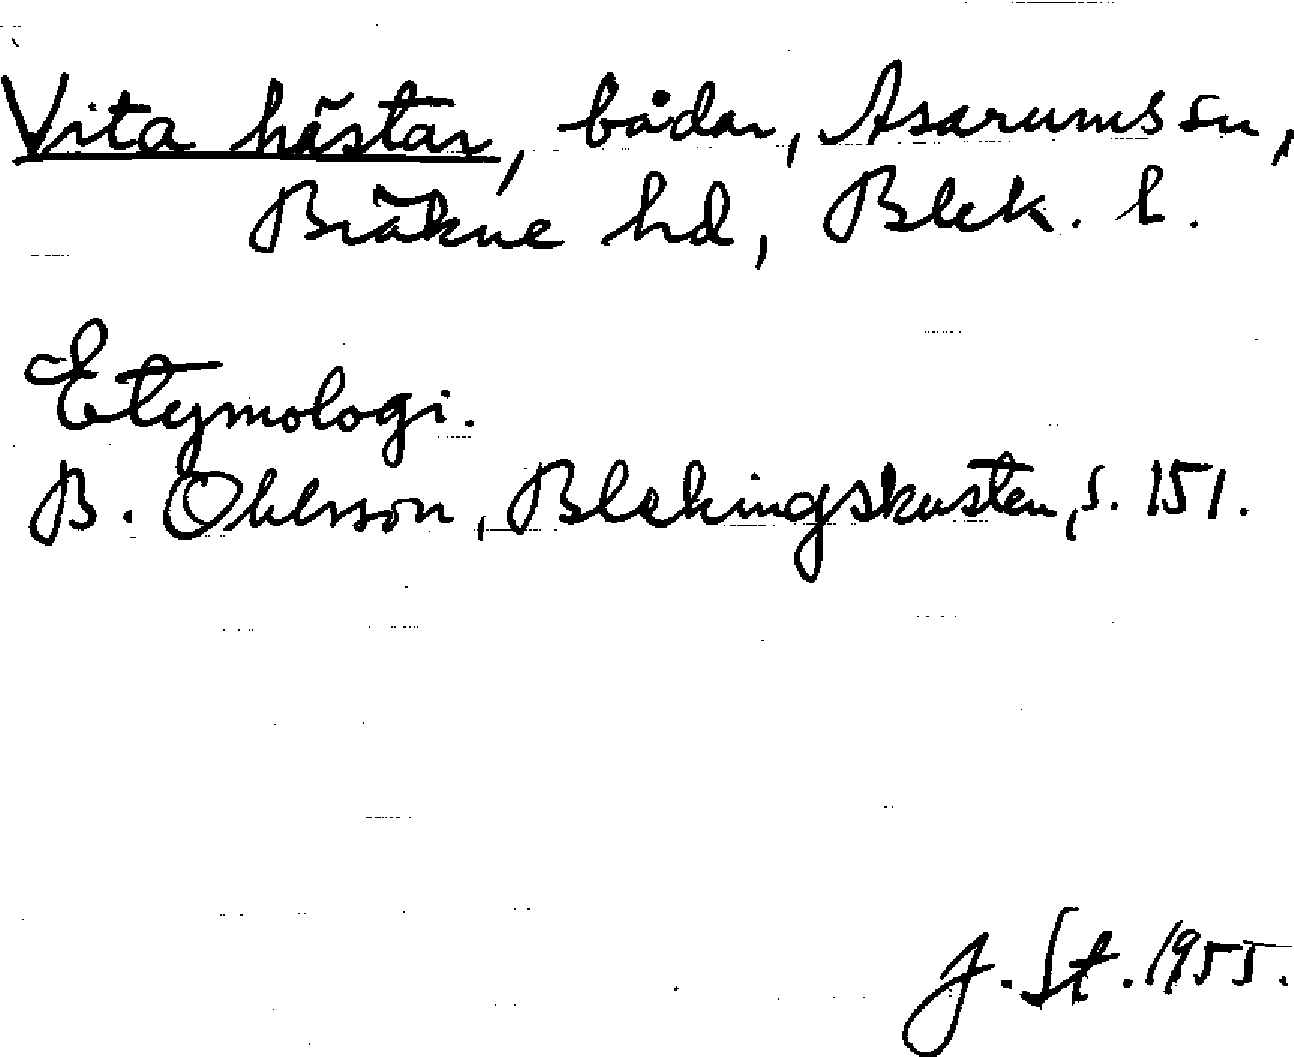 Vita hästar, bådar, Asarums sn,
Bräkne hd, Blek. l.
Etymologi.
B. Ohlsson, Blekingskusten, s. 151.
J. St. 1955.